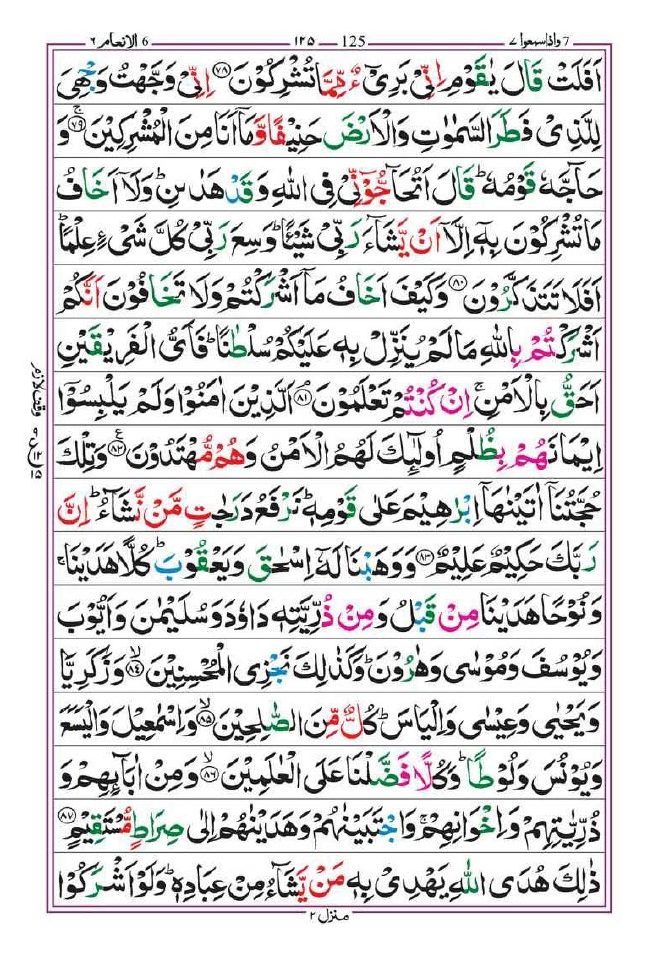 7 واذاسمعوا ٧ 125 ١٢٥ 6 الانعام ٦
اَفَلَتْ قَالَ يٰقَوْمِ اِنِّىْ بَرِىْٓءٌ مِّمَّا تُشْرِكُوْنَ ﴿٧٨﴾ اِنِّىْ وَجَّهْتُ وَجْهِىَ
لِلَّذِىْ فَطَرَ السَّمٰوٰتِ وَالْاَرْضَ حَنِيْفًا وَّمَاۤ اَنَا مِنَ الْمُشْرِكِيْنَ ۚ﴿٧٩﴾ وَ
حَآجَّهٗ قَوْمُهٗ ؕ قَالَ اَتُحَآجُّوْٓنِّىْ فِى اللّٰهِ وَقَدْ هَدٰىنِ ؕ وَلَاۤ اَخَافُ
مَا تُشْرِكُوْنَ بِهٖۤ اِلَّاۤ اَنْ يَّشَآءَ رَبِّىْ شَيْـًٔا ؕ وَسِعَ رَبِّىْ كُلَّ شَىْءٍ عِلْمًا ؕ
اَفَلَا تَتَذَكَّرُوْنَ ﴿٨٠﴾ وَكَيْفَ اَخَافُ مَاۤ اَشْرَكْتُمْ وَلَا تَخَافُوْنَ اَنَّكُمْ
اَشْرَكْتُمْ بِاللّٰهِ مَا لَمْ يُنَزِّلْ بِهٖ عَلَيْكُمْ سُلْطٰنًا ؕ فَاَىُّ الْفَرِيْقَيْنِ
اَحَقُّ بِالْاَمْنِ ۚ اِنْ كُنْتُمْ تَعْلَمُوْنَ ۘ﴿٨١﴾ اَلَّذِيْنَ اٰمَنُوْا وَلَمْ يَلْبِسُوْۤا
وقف لازم
اِيْمَانَهُمْ بِظُلْمٍ اُولٰٓئِكَ لَهُمُ الْاَمْنُ وَهُمْ مُّهْتَدُوْنَ ﴿٨٢﴾ وَتِلْكَ
حُجَّتُنَاۤ اٰتَيْنٰهَاۤ اِبْرٰهِيْمَ عَلٰى قَوْمِهٖ ؕ نَرْفَعُ دَرَجٰتٍ مَّنْ نَّشَآءُ ؕ اِنَّ
رَبَّكَ حَكِيْمٌ عَلِيْمٌ ﴿٨٣﴾ وَوَهَبْنَا لَهٗۤ اِسْحٰقَ وَيَعْقُوْبَ ؕ كُلًّا هَدَيْنَا ۚ
وَنُوْحًا هَدَيْنَا مِنْ قَبْلُ وَمِنْ ذُرِّيَّتِهٖ دَاوٗدَ وَسُلَيْمٰنَ وَاَيُّوْبَ
وَيُوْسُفَ وَمُوْسٰى وَهٰرُوْنَ ؕ وَكَذٰلِكَ نَجْزِى الْمُحْسِنِيْنَ ۙ﴿٨٤﴾ وَزَكَرِيَّا
وَيَحْيٰى وَعِيْسٰى وَاِلْيَاسَ ؕ كُلٌّ مِّنَ الصّٰلِحِيْنَ ۙ﴿٨٥﴾ وَاِسْمٰعِيْلَ وَالْيَسَعَ
وَيُوْنُسَ وَلُوْطًا ؕ وَكُلًّا فَضَّلْنَا عَلَى الْعٰلَمِيْنَ ۙ﴿٨٦﴾ وَمِنْ اٰبَآئِهِمْ وَ
ذُرِّيّٰتِهِمْ وَاِخْوَانِهِمْ ۚ وَاجْتَبَيْنٰهُمْ وَهَدَيْنٰهُمْ اِلٰى صِرَاطٍ مُّسْتَقِيْمٍ ﴿٨٧﴾
ذٰلِكَ هُدَى اللّٰهِ يَهْدِىْ بِهٖ مَنْ يَّشَآءُ مِنْ عِبَادِهٖ ؕ وَلَوْ اَشْرَكُوْا
منزل ٢